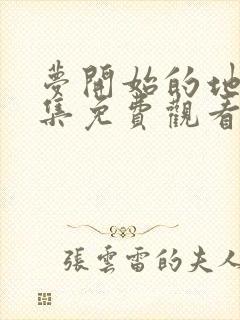 夢開始的地
集免費觀看
張雲雷的夫人